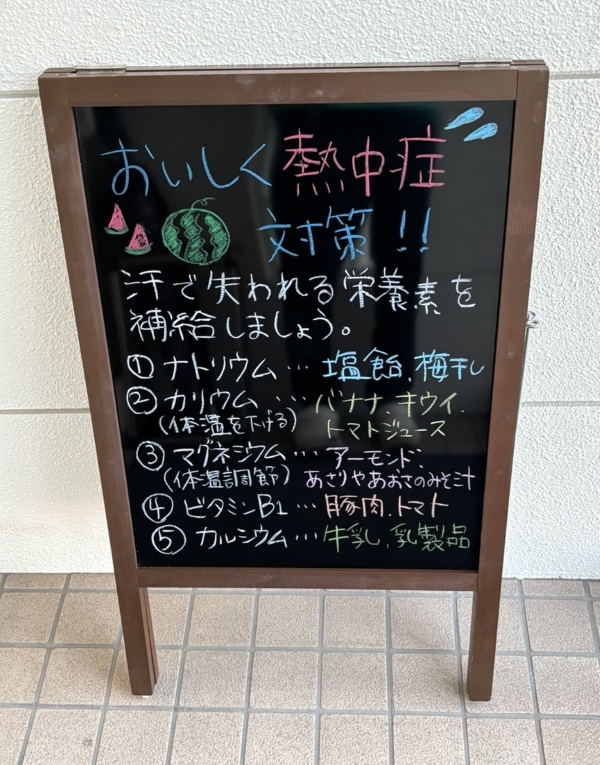 おいしく熱中症
対策!!
汗で失われる栄養素を
補給しましょう。
① ナトリウム… 塩飴、梅干し
② カリウム … バナナ、キウイ、
(体温を下げる) トマトジュース
③ マグネシウム… アーモンド、
(体温調節) あさりやあおさのみそ汁
④ ビタミンB1 … 豚肉、トマト
⑤ カルシウム… 牛乳、乳製品